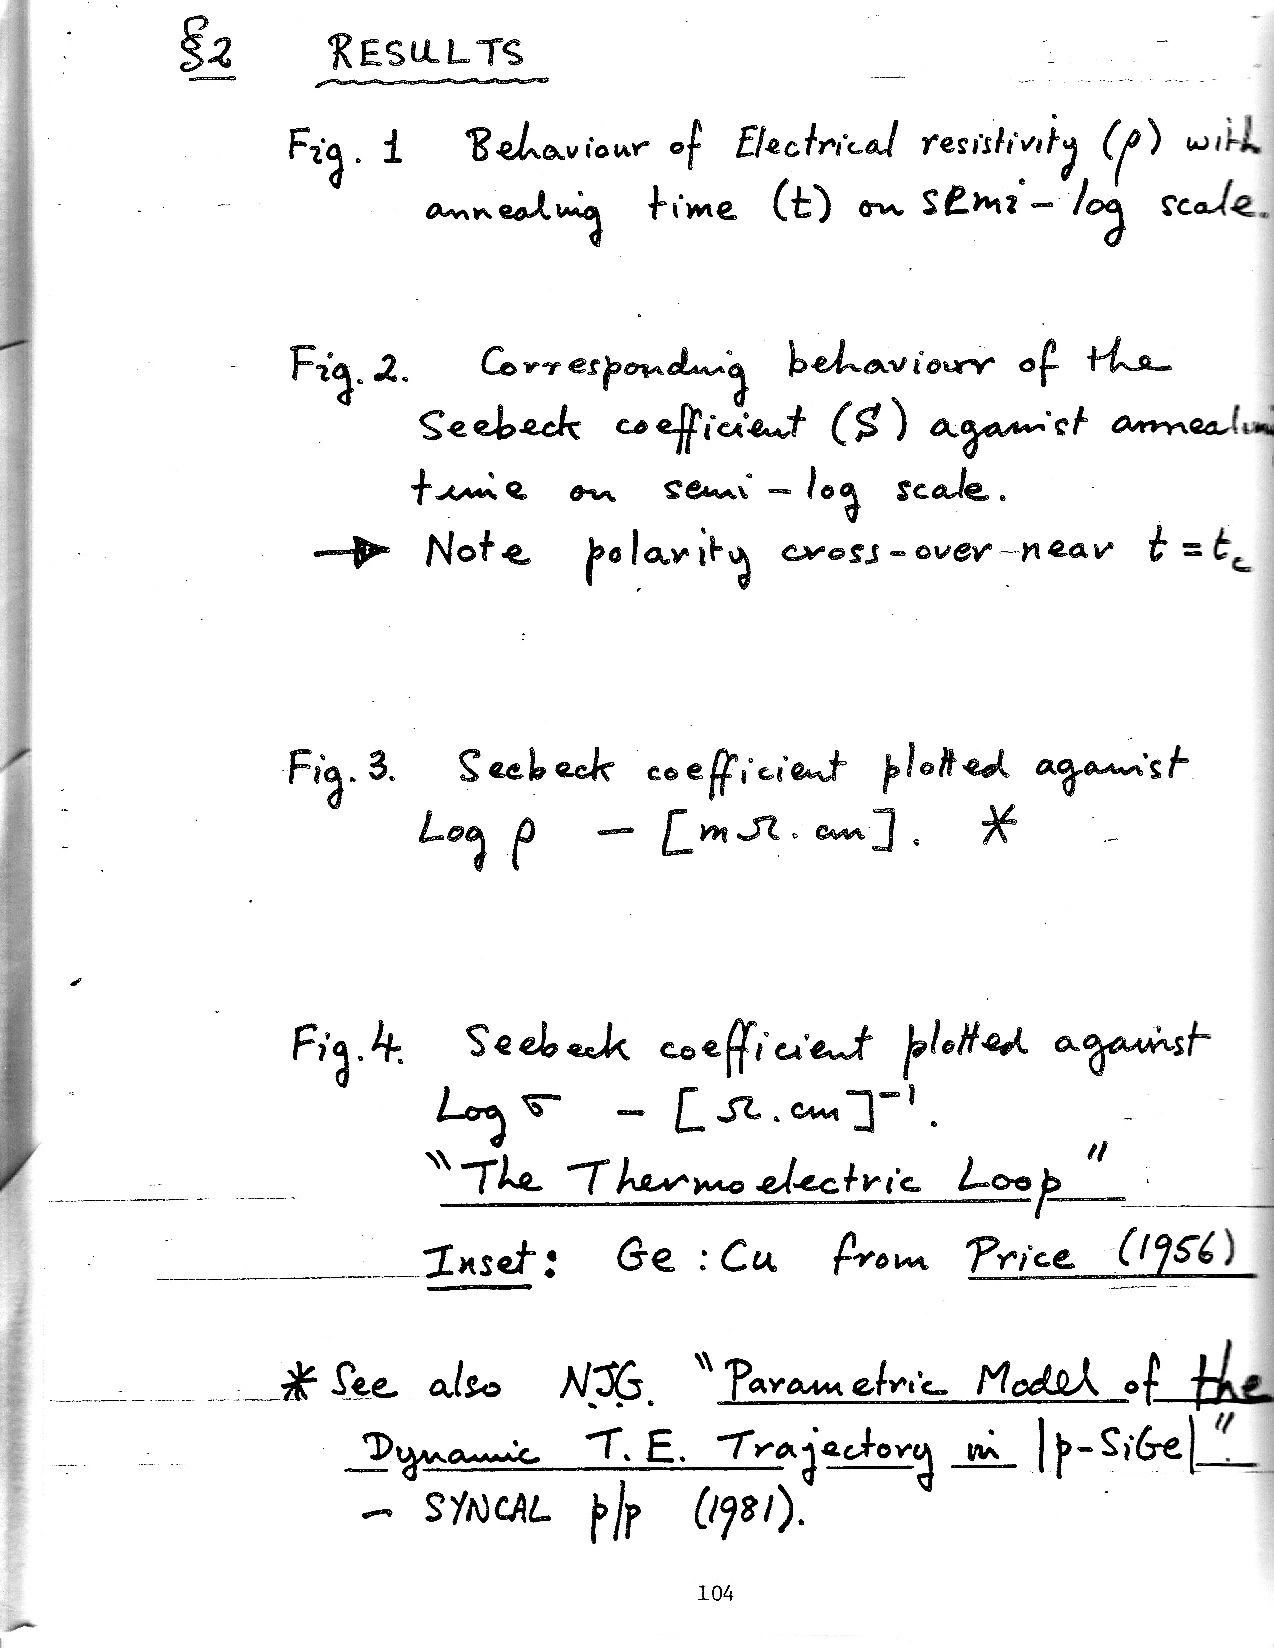 §2 RESULTS
Fig. 1 Behaviour of Electrical resistivity (ρ) with
annealing time (t) on semi-log scale.
Fig. 2. Corresponding behaviour of the
Seebeck coefficient (S) against annealing
time on semi-log scale.
→ Note polarity cross-over near t = tc
Fig. 3. Seebeck coefficient plotted against
Log ρ — [mΩ.cm]. *
Fig. 4. Seebeck coefficient plotted against
Log σ — [Ω.cm]⁻¹.
"The Thermoelectric Loop"
Inset: Ge : Cu from Price (1956)
* See also NJG. "Parametric Model of the
Dynamic T.E. Trajectory in |p-SiGe|"
— SYNCAL p/p (1981).
104